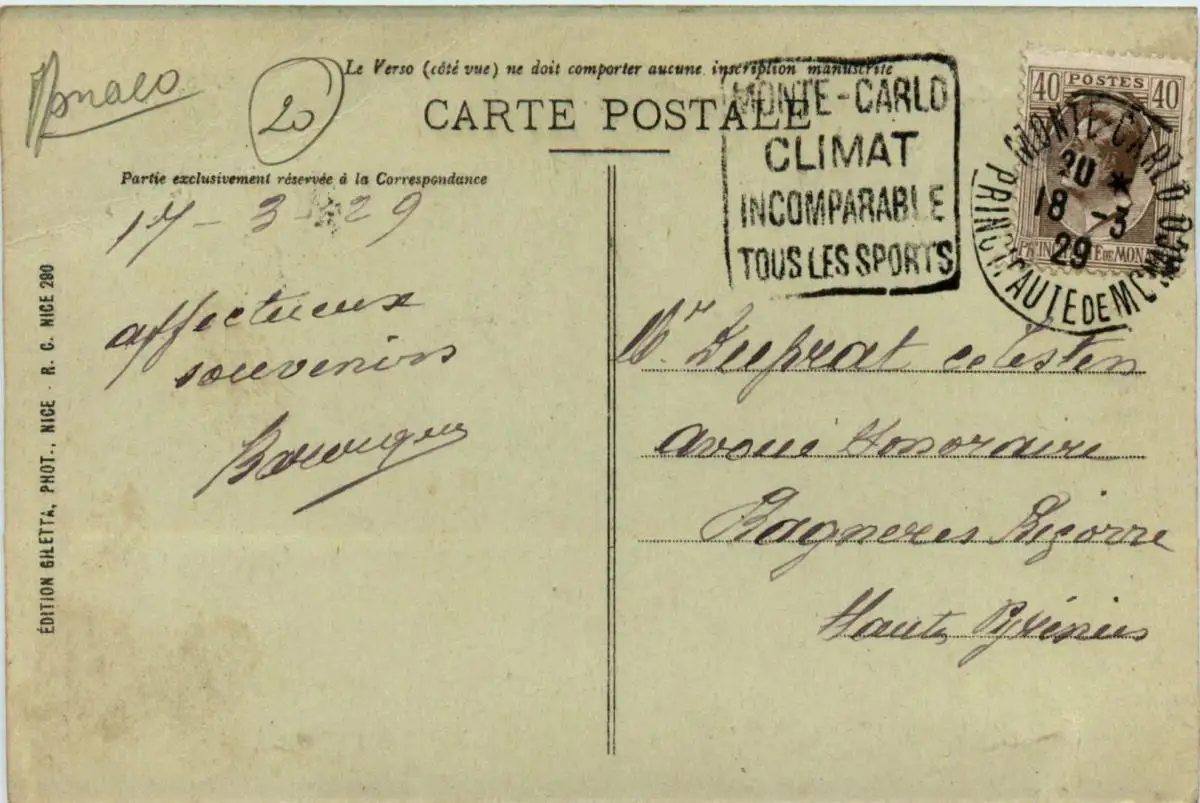 Monaco
20
Le Verso (côté vue) ne doit comporter aucune inscription manuscrite
CARTE POSTALE
MONTE-CARLO
CLIMAT
INCOMPARABLE
TOUS LES SPORTS
40 POSTES 40
MONTE-CARLO
20 *
18 -3
29
PRINCIPAUTE DE MONACO
Partie exclusivement réservée à la Correspondance
17 - 3 - 29
affectueux
souvenirs
Mr. Duprat celestin
avoué Honoraire
Bagneres Bigorre
Hautes Pyrénées
ÉDITION GILETTA, PHOT., NICE - R. C. NICE 290